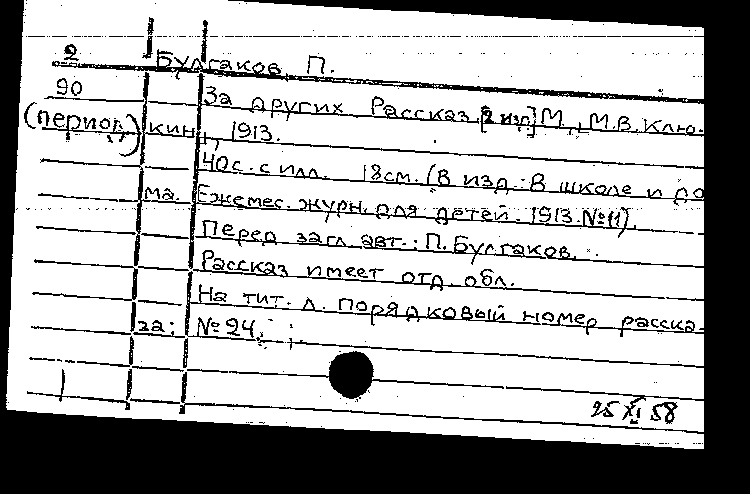 2 Булгаков, П.
90 За других. Рассказ. [2 изд.] М., М.В. Клю-
(период.) кин, 1913.
40с. с илл. 18см. (В изд.: В школе и до
ма. Ежемес. журн. для детей. 1913. №11).
Перед загл. авт.: П. Булгаков.
Рассказ имеет отд. обл.
На тит. л. порядковый номер расска-
за: №24.
25 XI 58